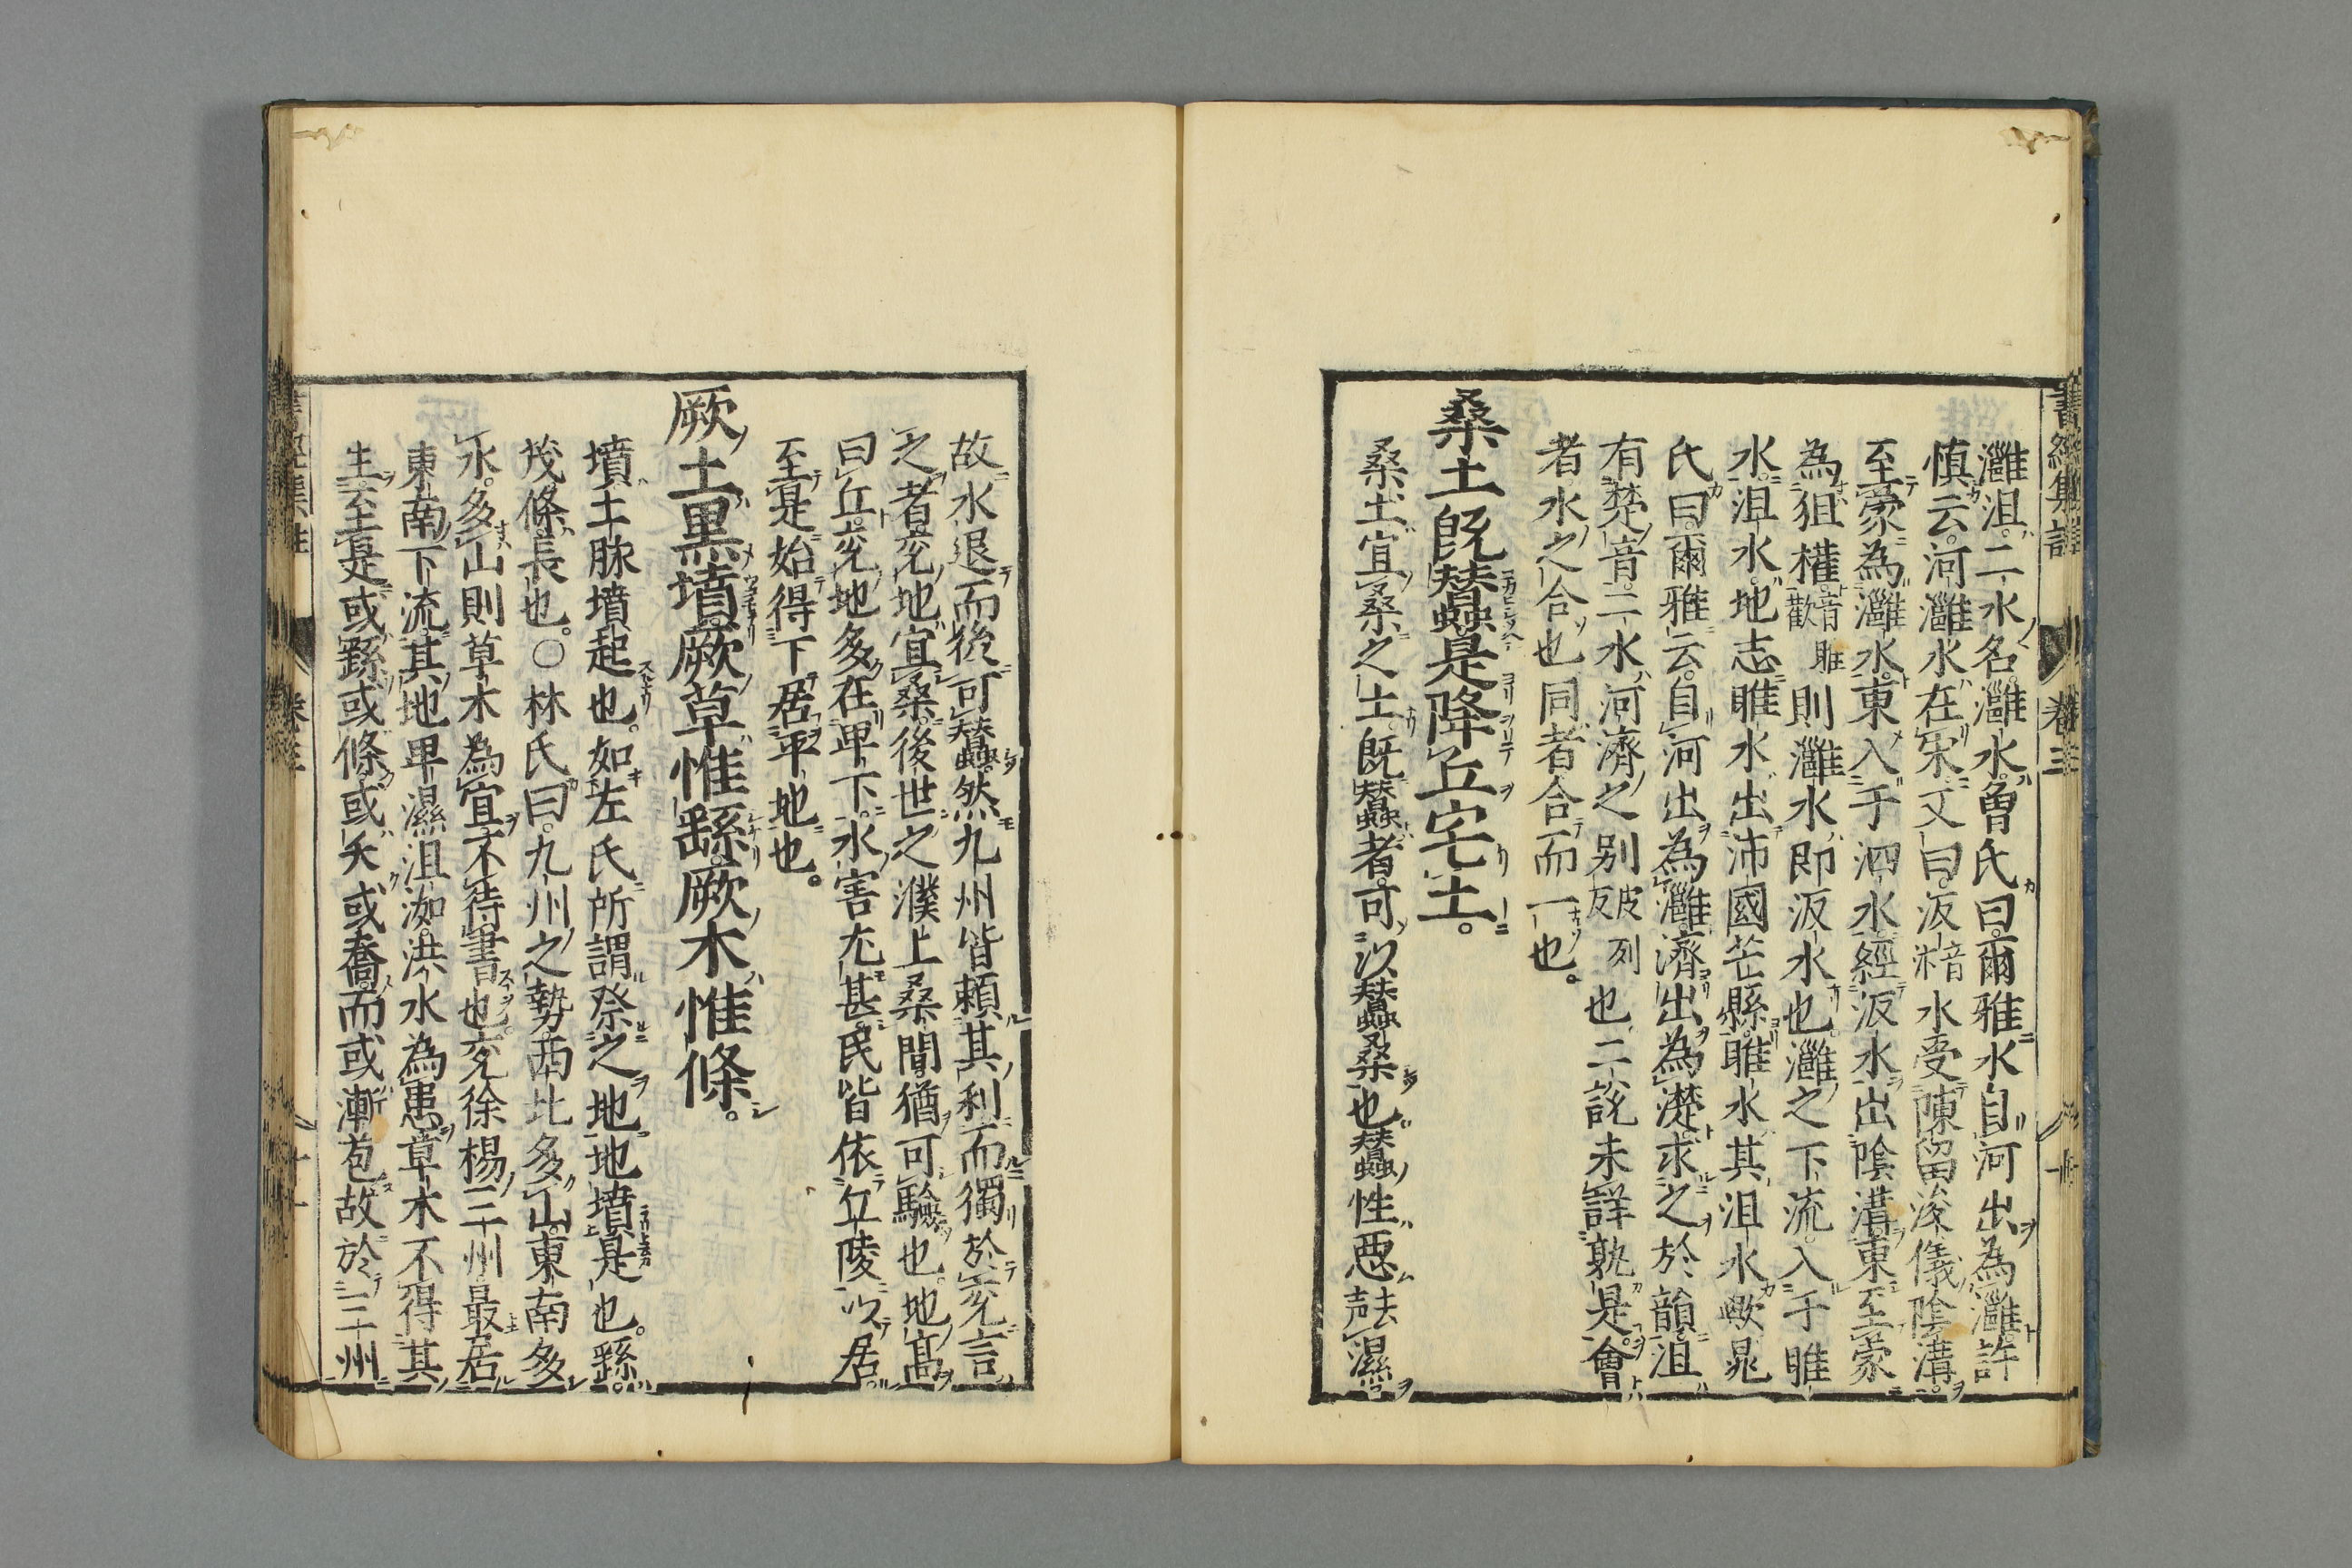 書經集註 卷三 十
灉沮二水名灉水曾氏曰爾雅水自河出為灉許
慎云河灉水在宋又曰汳音汴水受陳留浚儀陰溝
至蒙為灉水東入于泗水經汳水出陰溝東至蒙
為狙獾音歡雎則灉水即汳水也灉之下流入于睢
水沮水地志睢水出沛國芒縣睢水其沮水歟晁
氏曰爾雅云自河出為灉濟出為濋求之於韻沮
有楚音二水河濟之別皮列反也二說未詳孰是會
者水之合也同者合而一也。
桑土既蠶是降丘宅土。
桑土宜桑之土既蠶者可以蠶桑也蠶性惡去聲濕
故水退而後可蠶然九州皆賴其利而獨於兗言
之者兗地宜桑後世之濮上桑間猶可驗也地高
曰丘兗地多在卑下水害尤甚民皆依丘陵以居
至是始得下居平地也。
厥土黑墳厥草惟繇厥木惟條。
墳土脉墳起也。如左氏所謂祭之地地墳是也。繇
茂條長也。○林氏曰九州之勢西北多山東南多
水多山則草木為宜不待書也兗徐楊三州最居
東南下流其地卑濕沮洳洪水為患草木不得其
生至是或繇或條或夭或喬而或漸苞故於三州
書經集註 卷三 十一